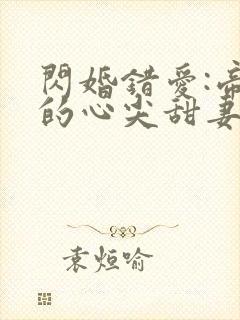 閃婚錯愛:帝
的心尖甜妻
袁烜喻